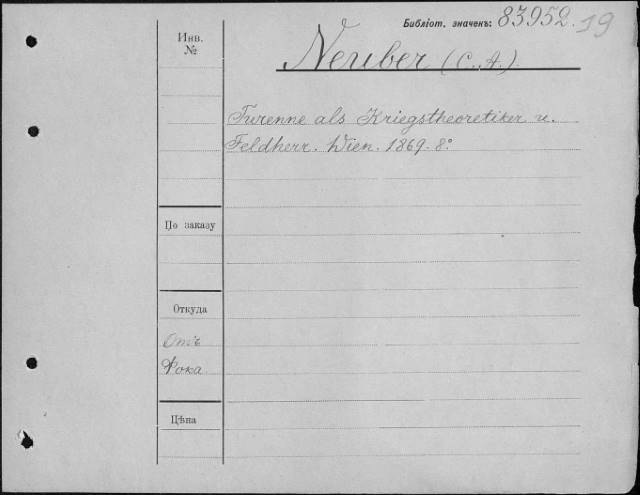 Библіот. значенъ: 83952.19
Инв.
№
Neuber (C. A.)
Turenne als Kriegstheoretiker u.
Feldherr. Wien. 1869. 8º.
По заказу
Откуда
Отъ
Фока
Цѣна